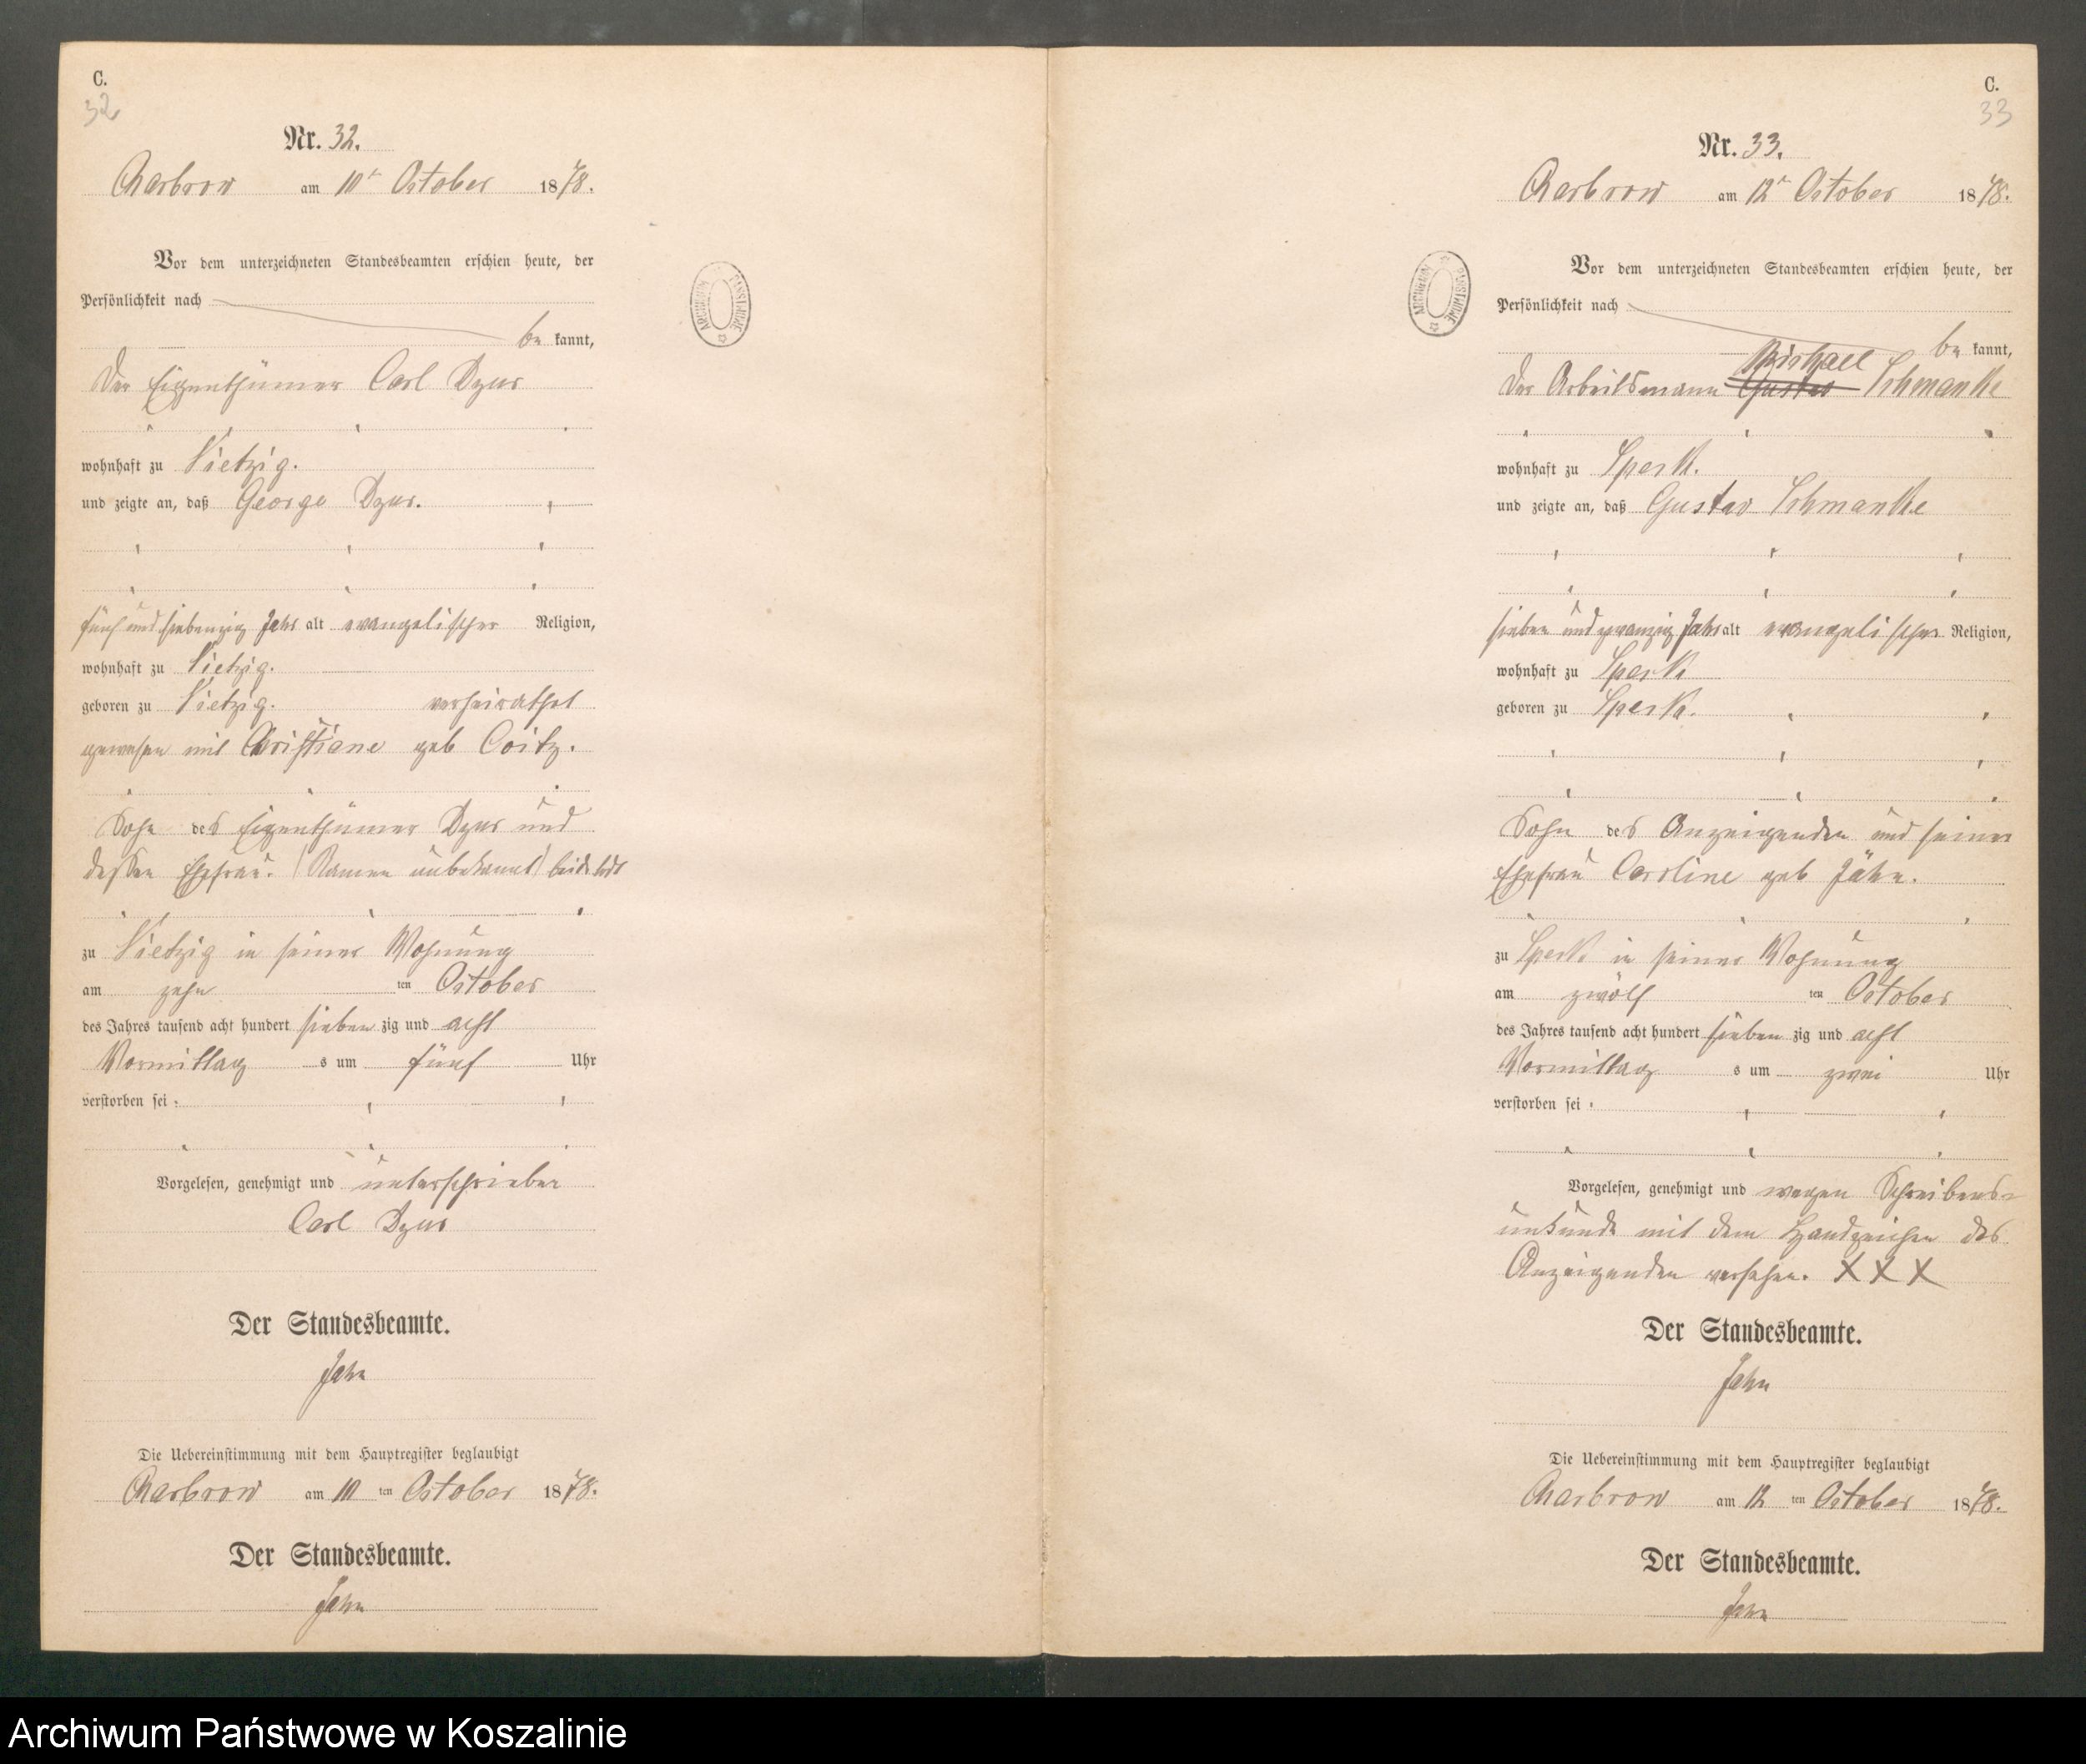 C.
32
Nr. 32.
Charbrow am 10t October 1878.
Vor dem unterzeichneten Standesbeamten erschien heute, der
Persönlichkeit nach
be kannt,
Der Eigenthümer Carl Dzus
wohnhaft zu Vietzig.
und zeigte an, daß George Dzus.
fünf und siebenzig Jahr alt evangelischer Religion,
wohnhaft zu Vietzig.
geboren zu Vietzig. verheirathet
gewesen mit Christiane geb Coitz.
Sohn des Eigenthümer Dzus und
dessen Ehefrau. (Namen unbekannt) beide todt
zu Vietzig in seiner Wohnung
am zehn ten October
des Jahres tausend acht hundert sieben zig und acht
Vormittag s um fünf Uhr
verstorben sei
Vorgelesen, genehmigt und unterschrieben
Carl Dzus
Der Standesbeamte.
Jahn
Die Uebereinstimmung mit dem Hauptregister beglaubigt
Charbrow am 10 ten October 1878.
Der Standesbeamte.
Jahn
ARCHIWUM PAŃSTWOWE
C.
33
Nr. 33.
Charbrow am 12t October 1878.
Vor dem unterzeichneten Standesbeamten erschien heute, der
Persönlichkeit nach
be kannt,
Michael
Der Arbeitsmann Gustav Schmanke
wohnhaft zu Speck.
und zeigte an, daß Gustav Schmanke
sieben und zwanzig Jahr alt evangelischer Religion,
wohnhaft zu Speck
geboren zu Speck.
Sohn des Anzeigenden und seiner
Ehefrau Caroline geb Jähn.
zu Speck in seiner Wohnung
am zwölf ten October
des Jahres tausend acht hundert sieben zig und acht
Vormittag s um zwei Uhr
verstorben sei
Vorgelesen, genehmigt und wegen Schreibens-
unkunde mit dem Handzeichen des
Anzeigenden versehen. X X X
Der Standesbeamte.
Jahn
Die Uebereinstimmung mit dem Hauptregister beglaubigt
Charbrow am 12 ten October 1878.
Der Standesbeamte.
Jahn
ARCHIWUM PAŃSTWOWE
Archiwum Państwowe w Koszalinie